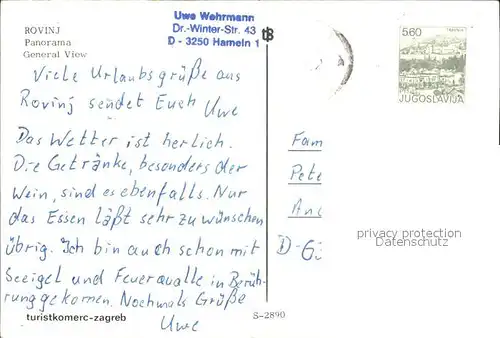 ROVINJ
Panorama
General View
Uwe Wehrmann
Dr.-Winter-Str. 43
D - 3250 Hameln 1
5.60
JUGOSLAVIJA
Viele Urlaubsgrüße aus
Rovinj sendet Euch Uwe
Das Wetter ist herlich.
Die Getränke, besonders der
Wein, sind es ebenfalls. Nur
das Essen läßt sehr zu wünschen
übrig. Ich bin auch schon mit
Seeigel und Feuerqualle in Berüh-
rung gekomen. Nochmals Grüße
Uwe
Fam
Pete
And
D-63
privacy protection
Datenschutz
turistkomerc-zagreb
S-2890